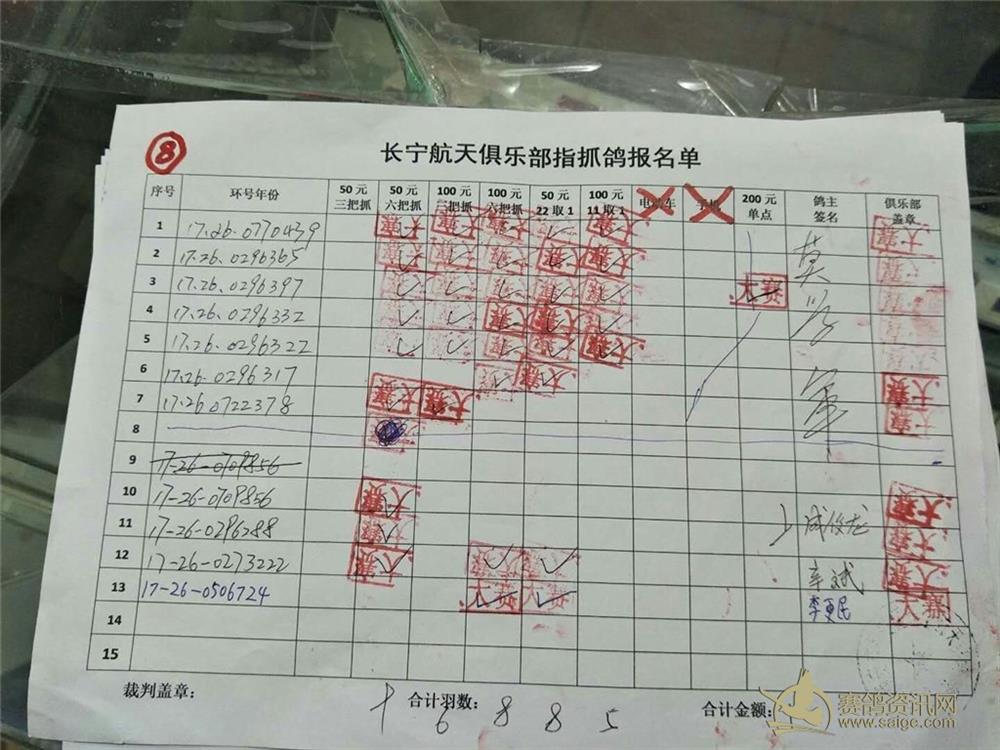 ⑧
长宁航天俱乐部指抓鸽报名单
序号 环号年份 50元三把抓 50元六把抓 100元三把抓 100元六把抓 50元22取1 100元11取1 200元单点 鸽主签名 俱乐部盖章
1 17.26.0770439 大赛 大赛 大赛 大赛 大赛
2 17.26.0296365
3 17.26.0296397 大赛
4 17.26.0296332
5 17.26.0296322
6 17.26.0296317
7 17.26.0722378 大赛 大赛 大赛
8
9 17-26-0709856
10 17-26-0709856 大赛 大赛
11 17-26-0296288
12 17-26-0273222 大赛 大赛
13 17-26-0506724 大赛 大赛 李更民 大赛
14
15
裁判盖章： 合计羽数： 合计金额：
6 8 8 5
赛鸽资讯网
www.saige.com